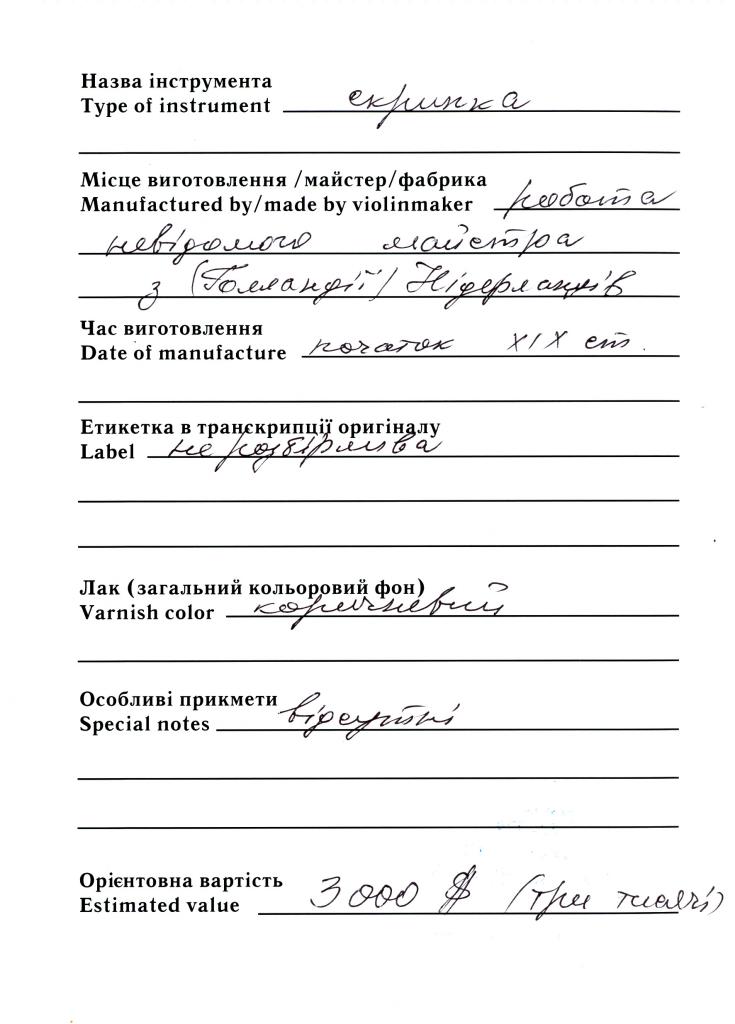 Назва інструмента
Type of instrument скрипка
Місце виготовлення /майстер/фабрика
Manufactured by/made by violinmaker робота
невідомого майстра
з (Голландії) Нідерландів
Час виготовлення
Date of manufacture початок XIX ст.
Етикетка в транскрипції оригіналу
Label не розбірлива
Лак (загальний кольоровий фон)
Varnish color коричневий
Особливі прикмети
Special notes відсутні
Орієнтовна вартість
Estimated value 3000 $ (три тисячі)